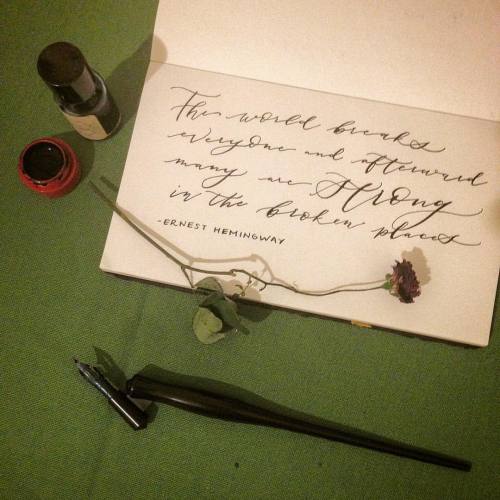 The world breaks
everyone and afterward
many are strong
in the broken places
-ERNEST HEMINGWAY